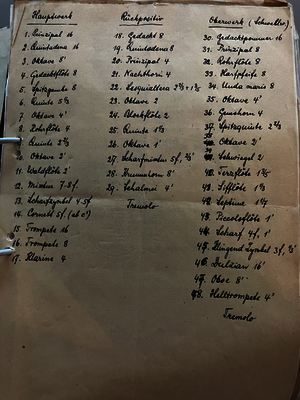 Hauptwerk
1. Prinzipal 16
2. Quintadena 16
3. Oktave 8'
4. Gedacktflöte 8
5. Spitzgambe 8
6. Quinte 5⅓
7. Oktav 4'
8. Rohrflöte 4
9. Quinte 2⅔
10. Oktave 2'
11. Waldflöte 2'
12. Mixtur 7-8f.
13. Scharfzymbel 4-5f
14. Cornett 5f. (ab c')
15. Trompete 16
16. Trompete 8
17. Klarine 4
Rückpositiv
18. Gedackt 8
19. Quintadena 8
20. Prinzipal 4
21. Nachthorn 4
22. Sesquialtera 2⅔+1⅗
23. Oktave 2
24. Blockflöte 2
25. Quinte 1⅓
26. Oktave 1'
27. Scharfmixtur 5f, ⅔'
28. Krummhorn 8'
29. Schalmei 4'
Tremolo
Oberwerk (Schweller)
30. Gedacktpommer 16
31. Prinzipal 8
32. Rohrflöte 8
33. Harfpfeife 8
34. Unda maris 8
35. Oktave 4'
36. Gemshorn 4
37. Spitzquinte 2⅔
Oktave 2'
Schwiegel 2
Terzflöte 1⅗
Sifflöte 1⅓
Septime 1⅐
43. Piccoloflöte 1'
Scharf 4f, 1'
Klingend Zymbel 3f,
Dulzian 16'
Oboe 8'
48. Helltrompete 4'
Tremolo